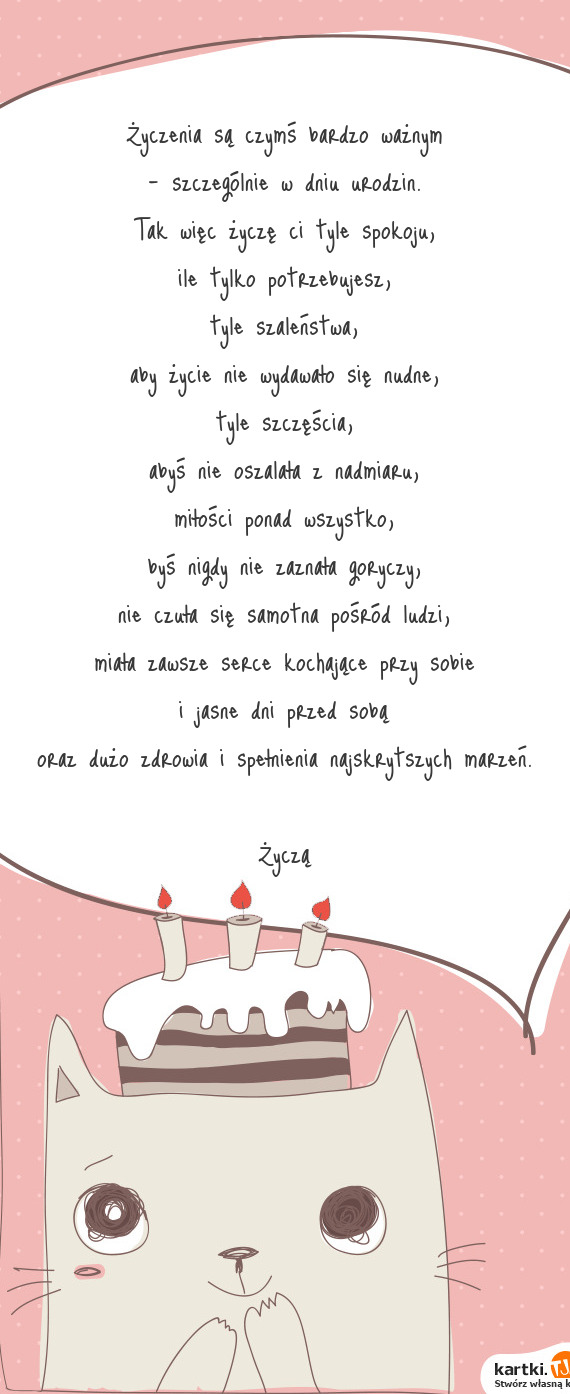 Życzenia są czymś bardzo ważnym
- szczególnie w dniu urodzin.
Tak więc życzę ci tyle spokoju,
ile tylko potrzebujesz,
tyle szaleństwa,
aby życie nie wydawało się nudne,
tyle szczęścia,
abyś nie oszalała z nadmiaru,
miłości ponad wszystko,
byś nigdy nie zaznała goryczy,
nie czuła się samotna pośród ludzi,
miała zawsze serce kochające przy sobie
i jasne dni przed sobą
oraz dużo zdrowia i spełnienia najskrytszych marzeń.
Życzą
kartki.TJ
Stwórz własną k